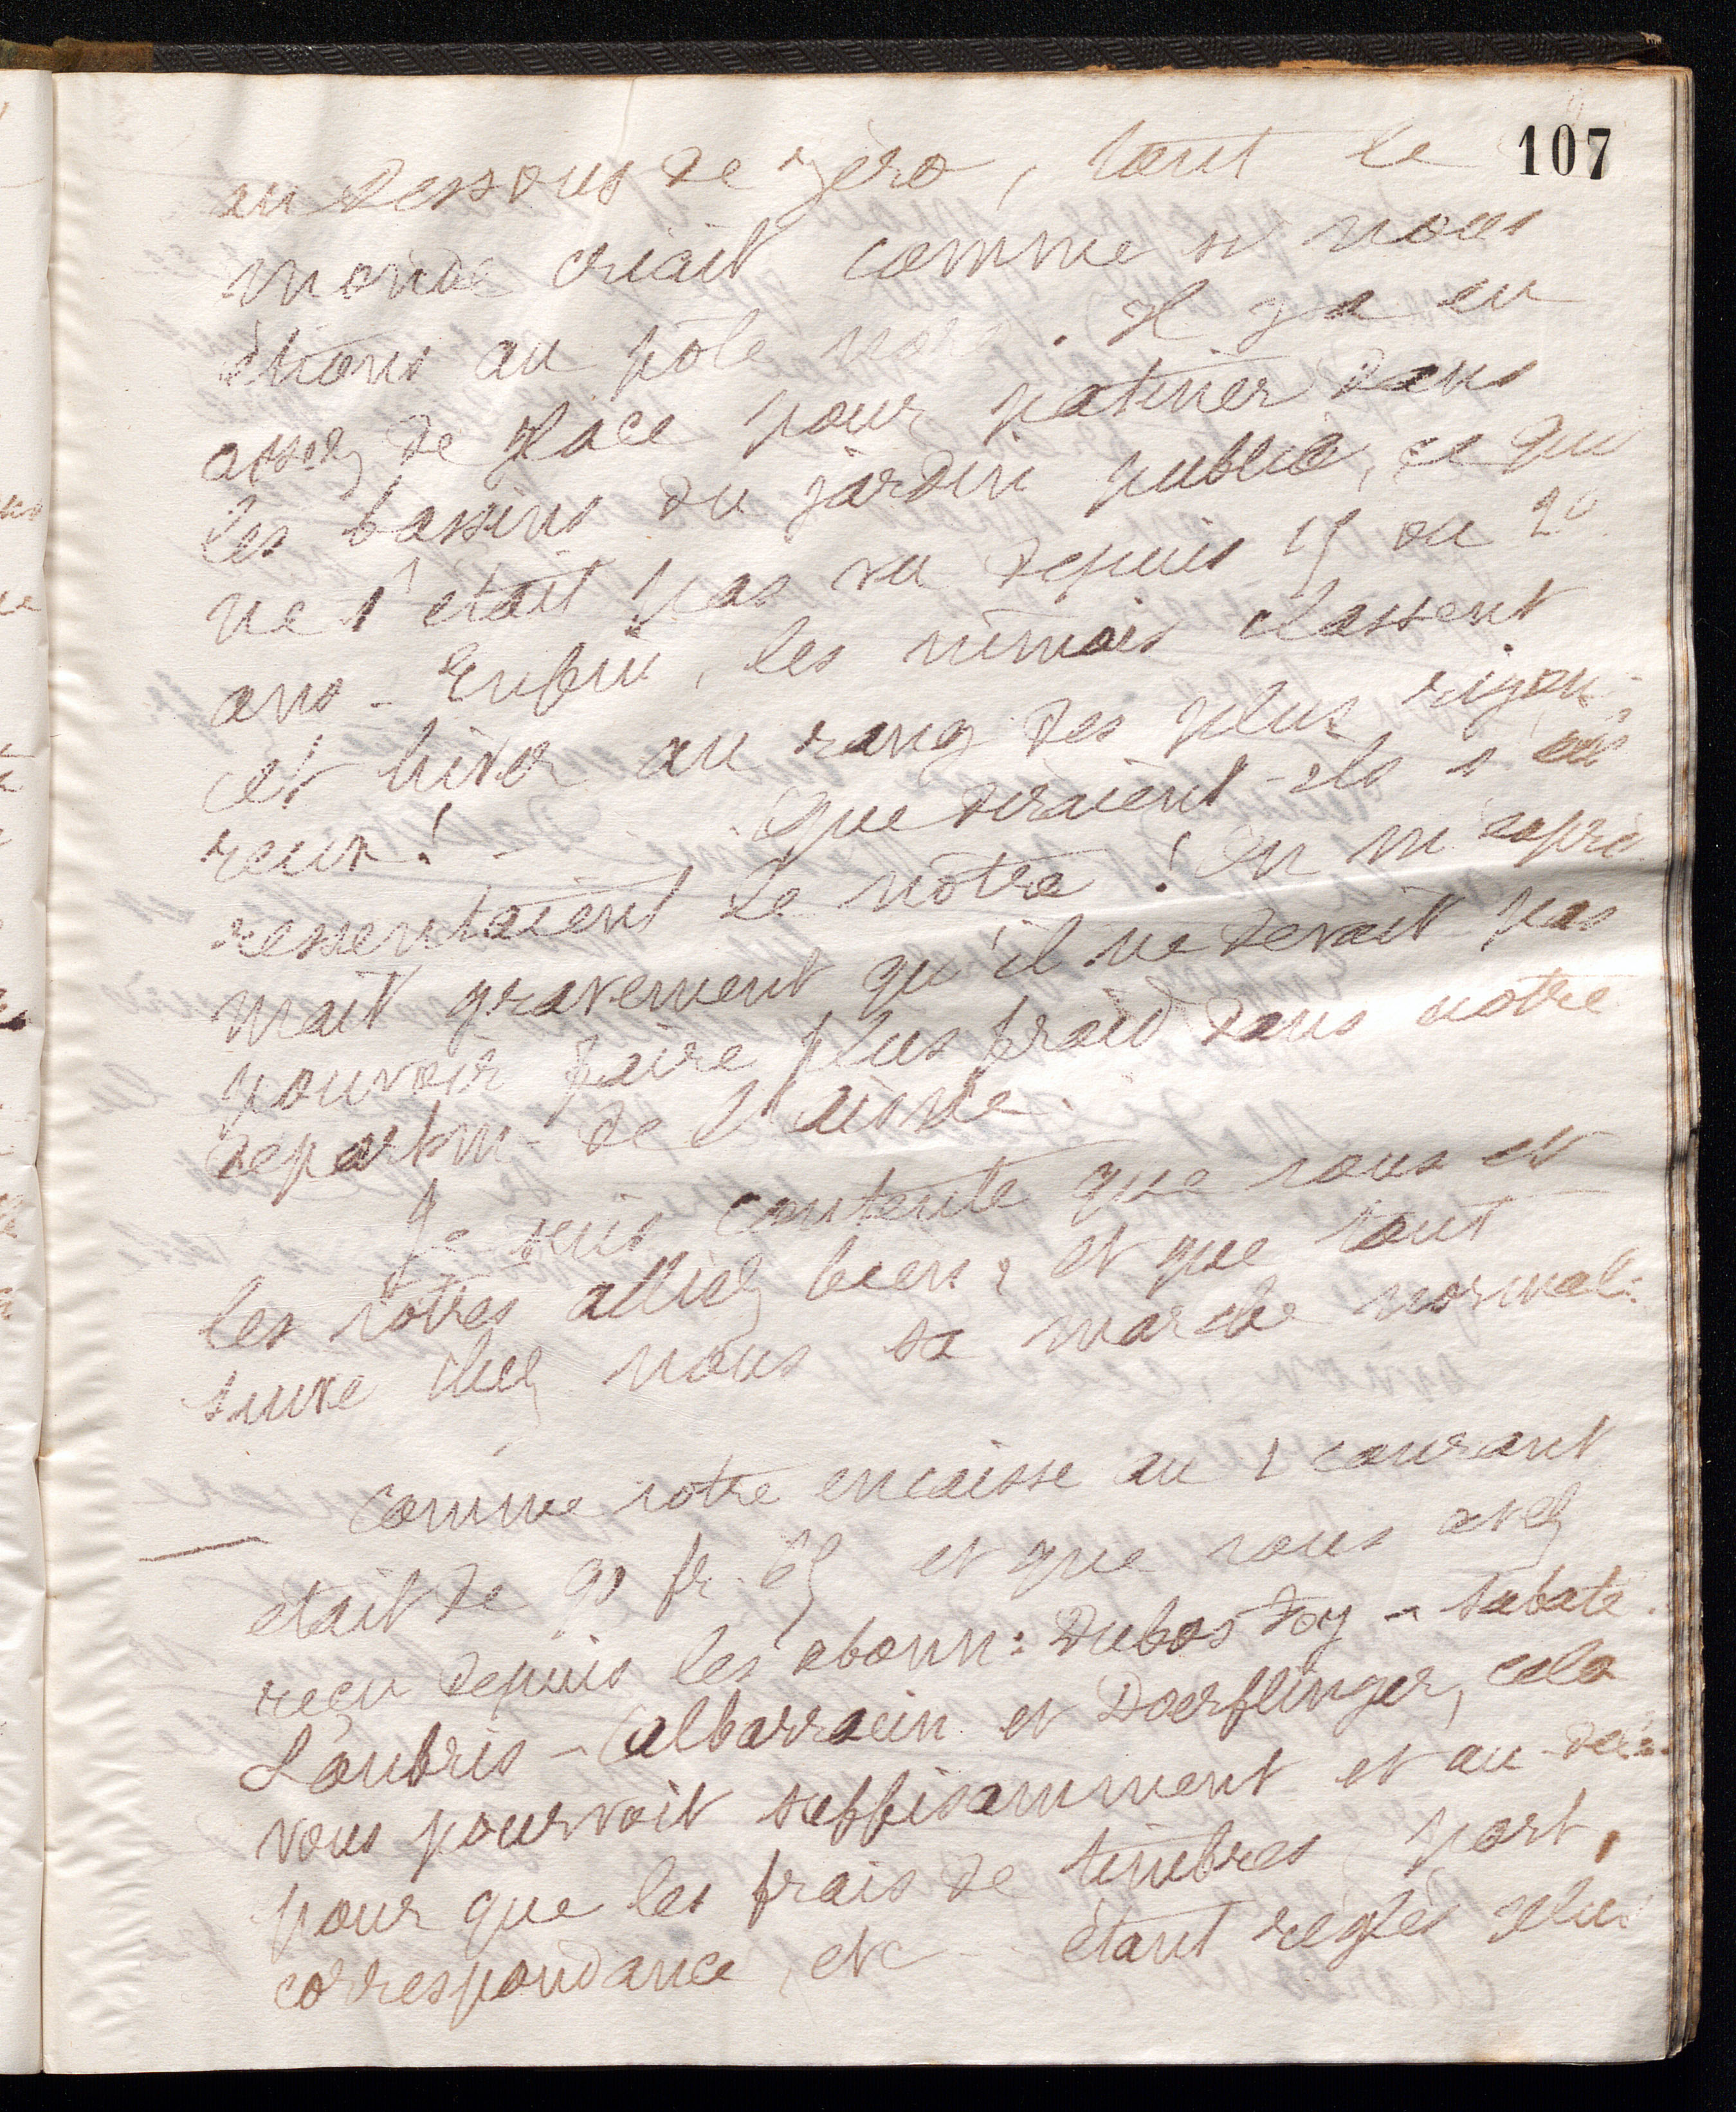 107
au dessous de zéro, tout le
monde criait comme si nous
étions au pôle nord. Il y a eu
assez de glace pour patiner dans
les bassins du jardin public, ce qui
ne s'était pas vu depuis 15 ou 20
ans - Enfin, les nimois classent
cet hiver au rang des plus rigou-
reux! - Que diraient-ils s'ils
ressentaient le nôtre! On m'expri-
mait gravement qu'il ne devait pas
pouvoir faire plus froid dans notre
departm- de l'aisne.
Je suis contente que vous et
les vôtres alliez bien, et que tout
suive chez nous sa marche normale
Comme votre encaisse au 1 courant
était de 90 fr. 65 et que vous avez
reçu depuis les abonn: Dubos Foy - Sabaté
Loubris - Calbarracin et Doerflinger, cela
vous pourvoit suffisamment et au-delà
pour que les frais de timbres, port,
correspondance, etc étant réglés plus